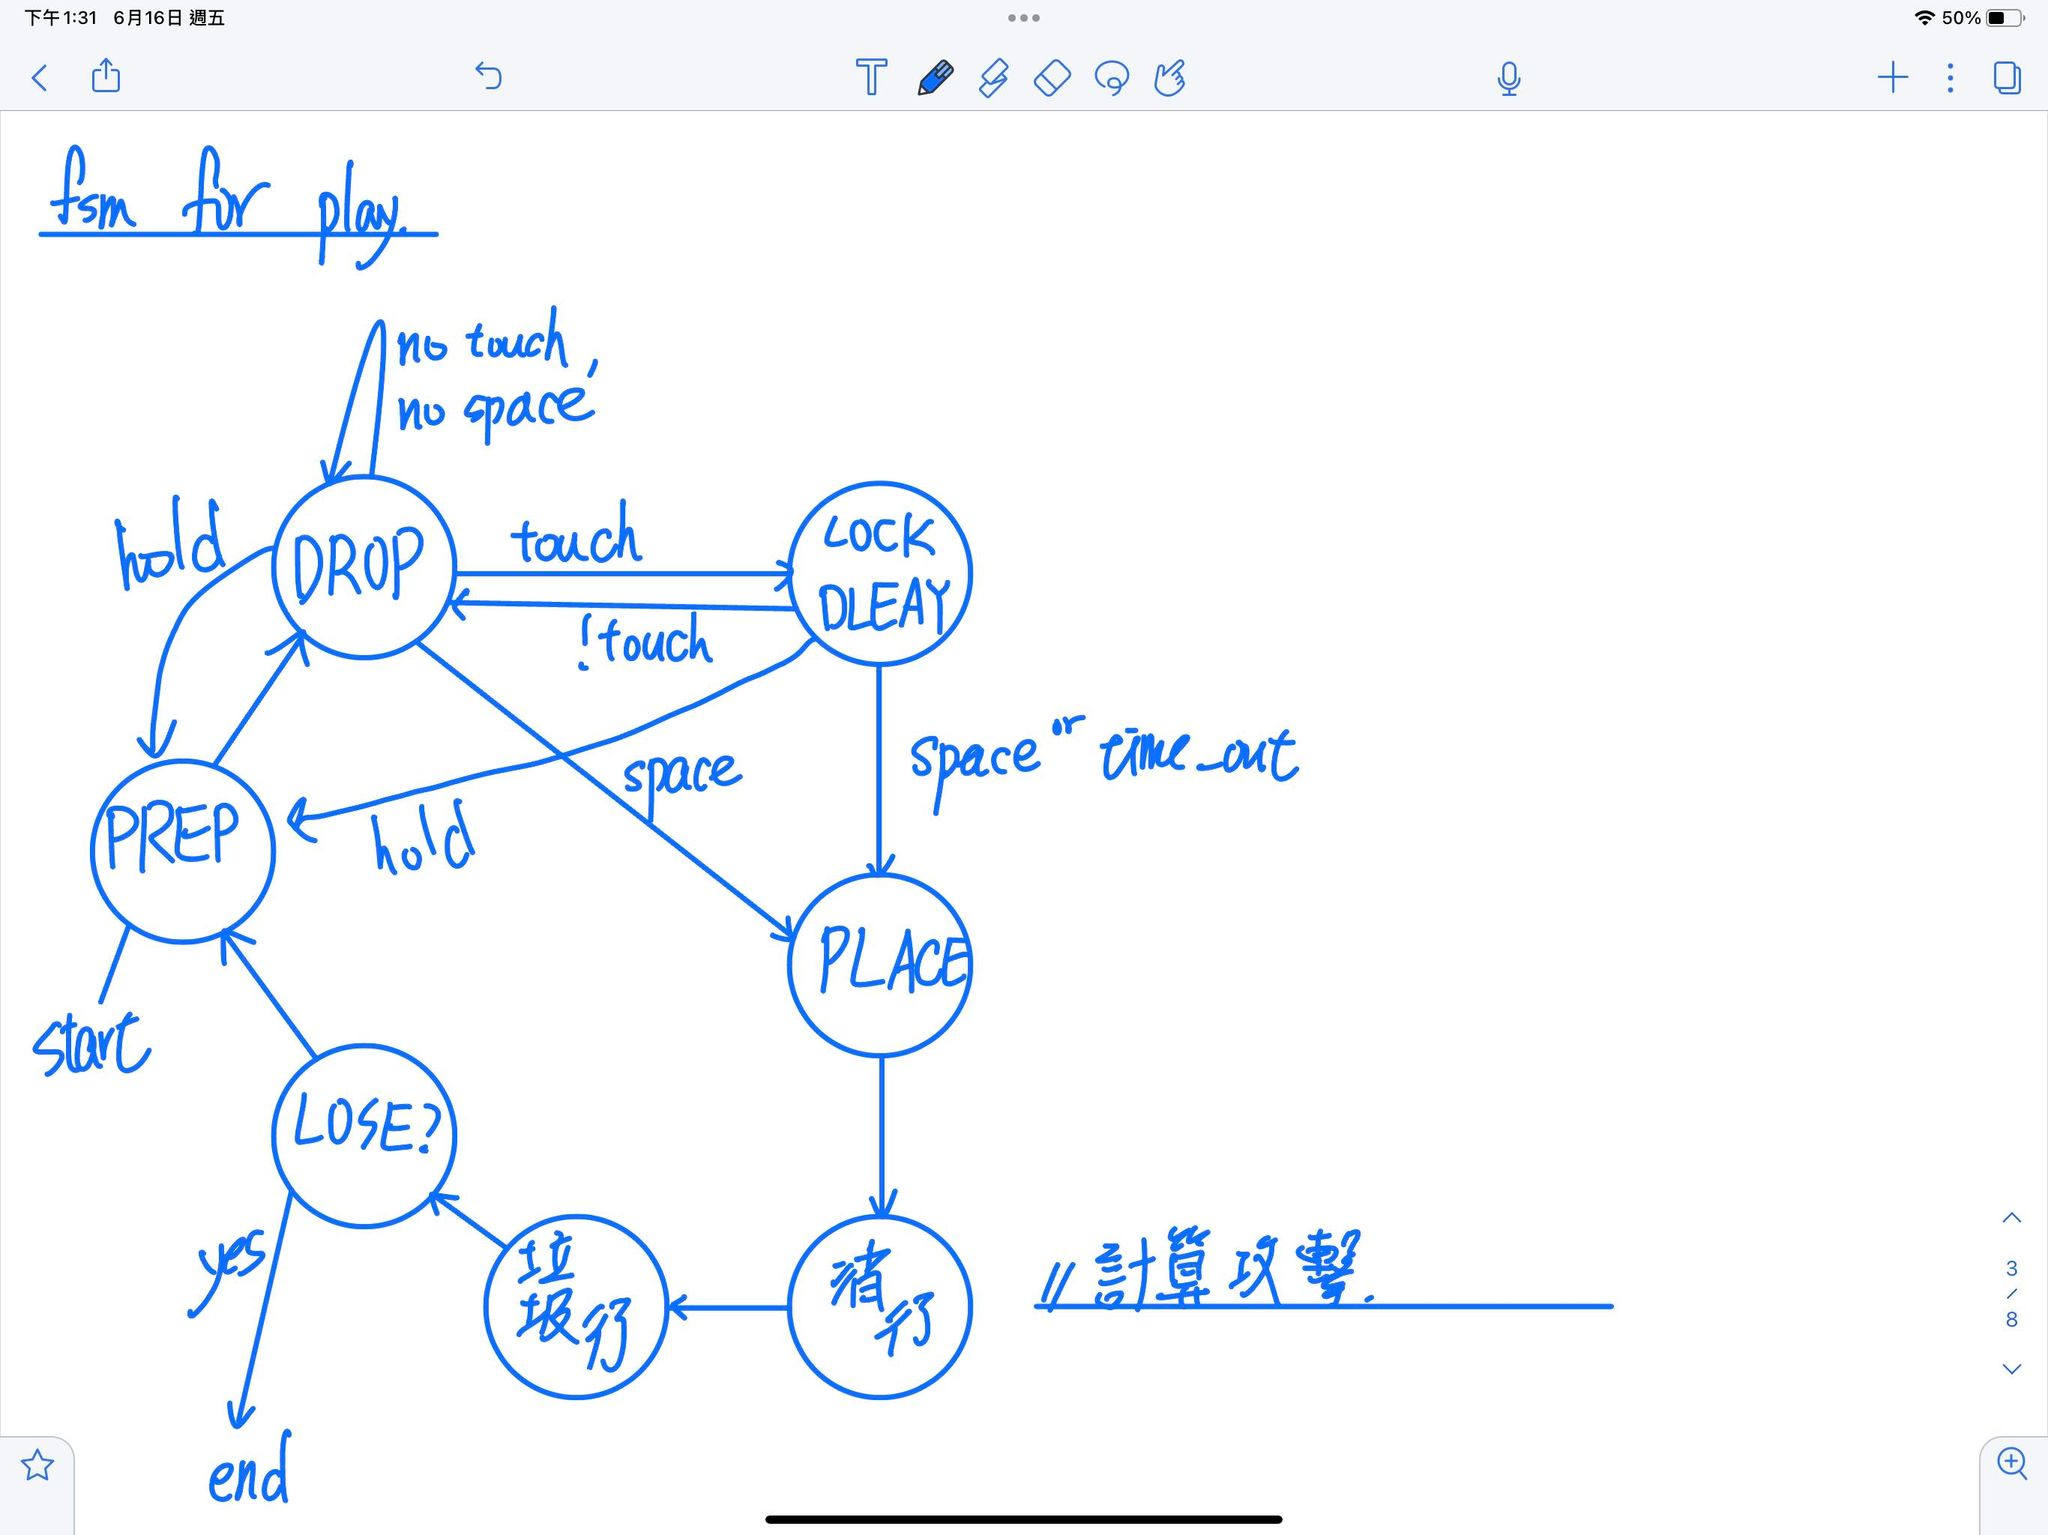 下午1:31 6月16日 週五
50%
fsm for play.
no touch,
no space
hold
DROP
touch
LOCK
DLEAY
!touch
space
space or time_out
PREP
hold
PLACE
start
LOSE?
yes
垃
圾行
清
行
//計算攻擊.
3
/
8
end